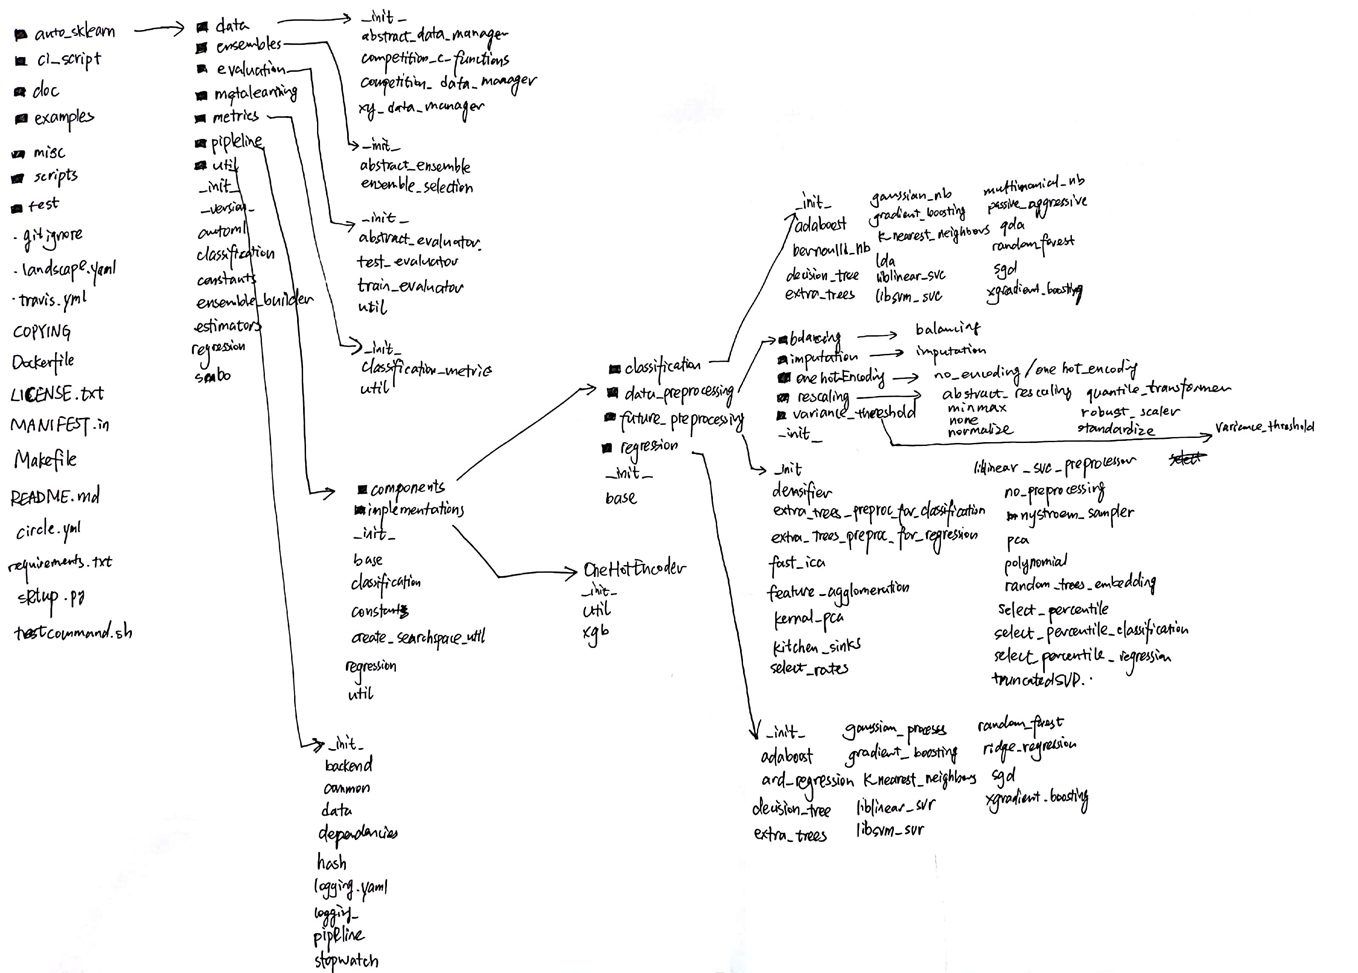 auto_sklearn
ci_script
doc
examples
misc
scripts
test
.gitignore
.landscape.yaml
.travis.yml
COPYING
Dockerfile
LICENSE.txt
MANIFEST.in
Makefile
README.md
circle.yml
requirements.txt
setup.py
testcommand.sh
data
ensembles
evaluation
metalearning
metrics
pipleline
util
_init_
_version_
automl
classification
constants
ensemble_builder
estimators
regression
smbo
_init_
abstract_data_manager
competition_c_functions
competition_data_manager
xy_data_manager
_init_
abstract_ensemble
ensemble_selection
_init_
abstract_evaluator.
test_evaluator
train_evaluator
util
_init_
classification_metric
util
components
implementations
_init_
base
classification
constants
create_searchspace_util
regression
util
_init_
backend
common
data
dependancies
hash
logging.yaml
logging_
pipeline
stopwatch
classification
data_preprocessing
future_preprocessing
regression
_init_
base
OneHotEncoder
_init_
util
xgb
_init_
adaboost
bernoulld_nb
decision_tree
extra_trees
gaussian_nb
gradient_boosting
k_nearest_neighbors
lda
liblinear_svc
libsvm_svc
multimonical_nb
passive_aggressive
qda
random_forest
sgd
xgradient_boosting
balancing
imputation
one hotEncoding
rescaling
variance_threshold
_init_
balancing
imputation
no_encoding / one hot_encoding
abstract_rescaling quantile_transformer
minmax robust_scaler
none
normalize standardize
variance_threshold
_init
densifier
extra_trees_preproc_for_classification
extra_trees_preproc_for_regression
fast_ica
feature_agglomeration
kernal_pca
kitchen_sinks
select_rates
liblinear_svc_preprocessor
select
no_preprocessing
nystroem_sampler
pca
polynomial
random_trees_embedding
select_percentile
select_percentile_classification
select_percentile_regression
truncatedSVD..
_init_
adaboost
ard_regression
decision_tree
extra_trees
gaussian_proeses
gradient_boosting
k_nearest_neighbors
liblinear_svr
libsvm_svr
random_forest
ridge_regression
sgd
xgradient.boosting